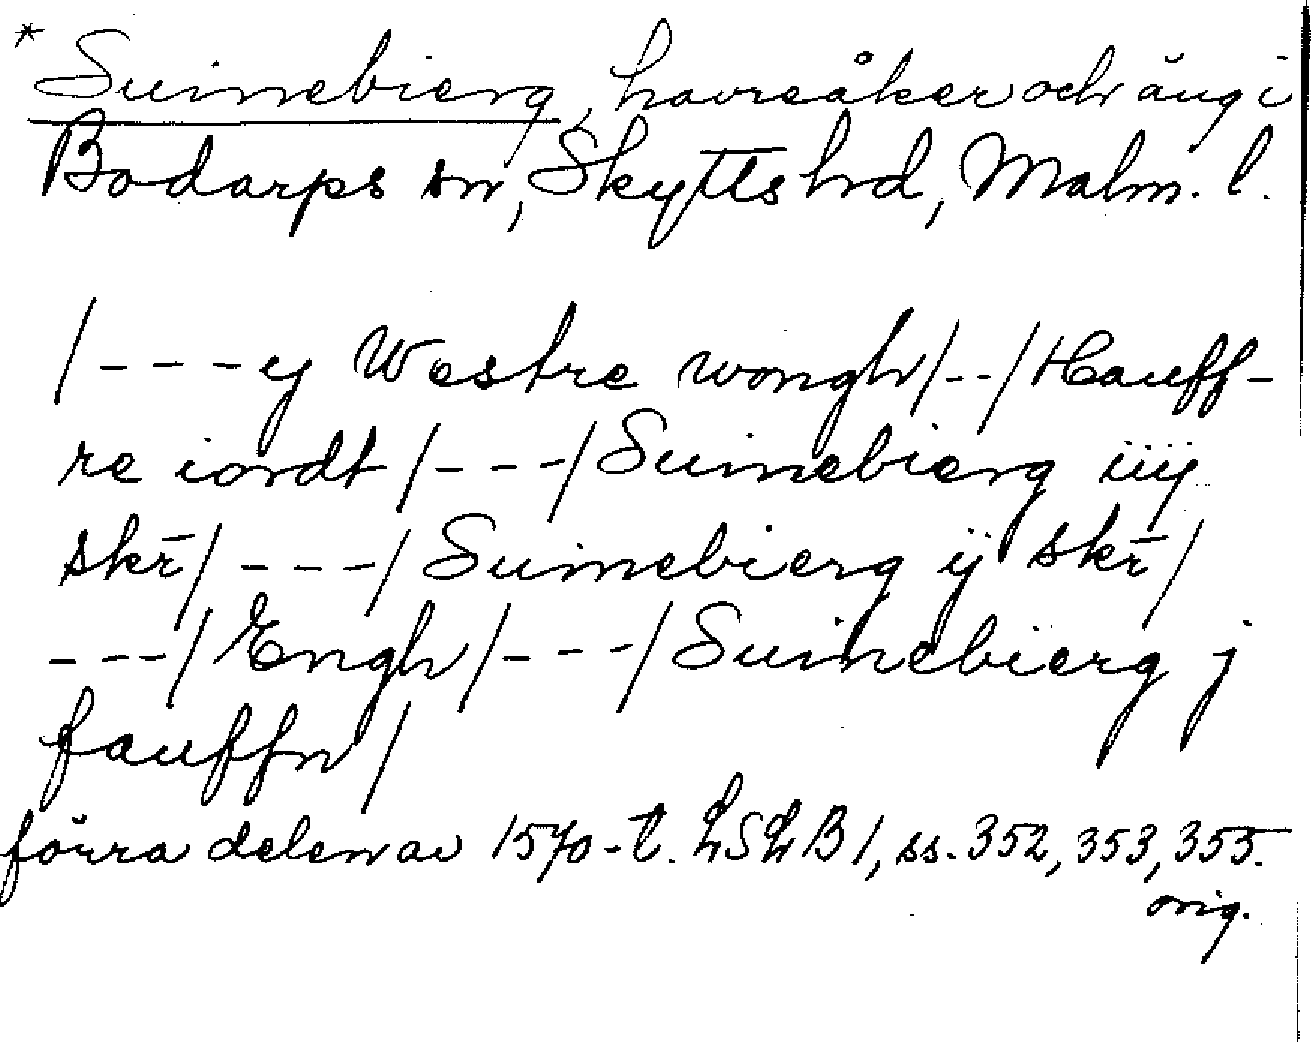 * Suinebierg, havreåker och äng i
Bodarps sn, Skytts hd, Malm. l.
/---y Westre wongh/--/Hauff-
re iordt/---/Suinebierg iiij
skr̄/---/Suinebierg ij skr̄/
---/Engh/---/Suinebierg j
fauffn/
förra delen av 1570-t. LSLB 1, ss. 352, 353, 355.
orig.